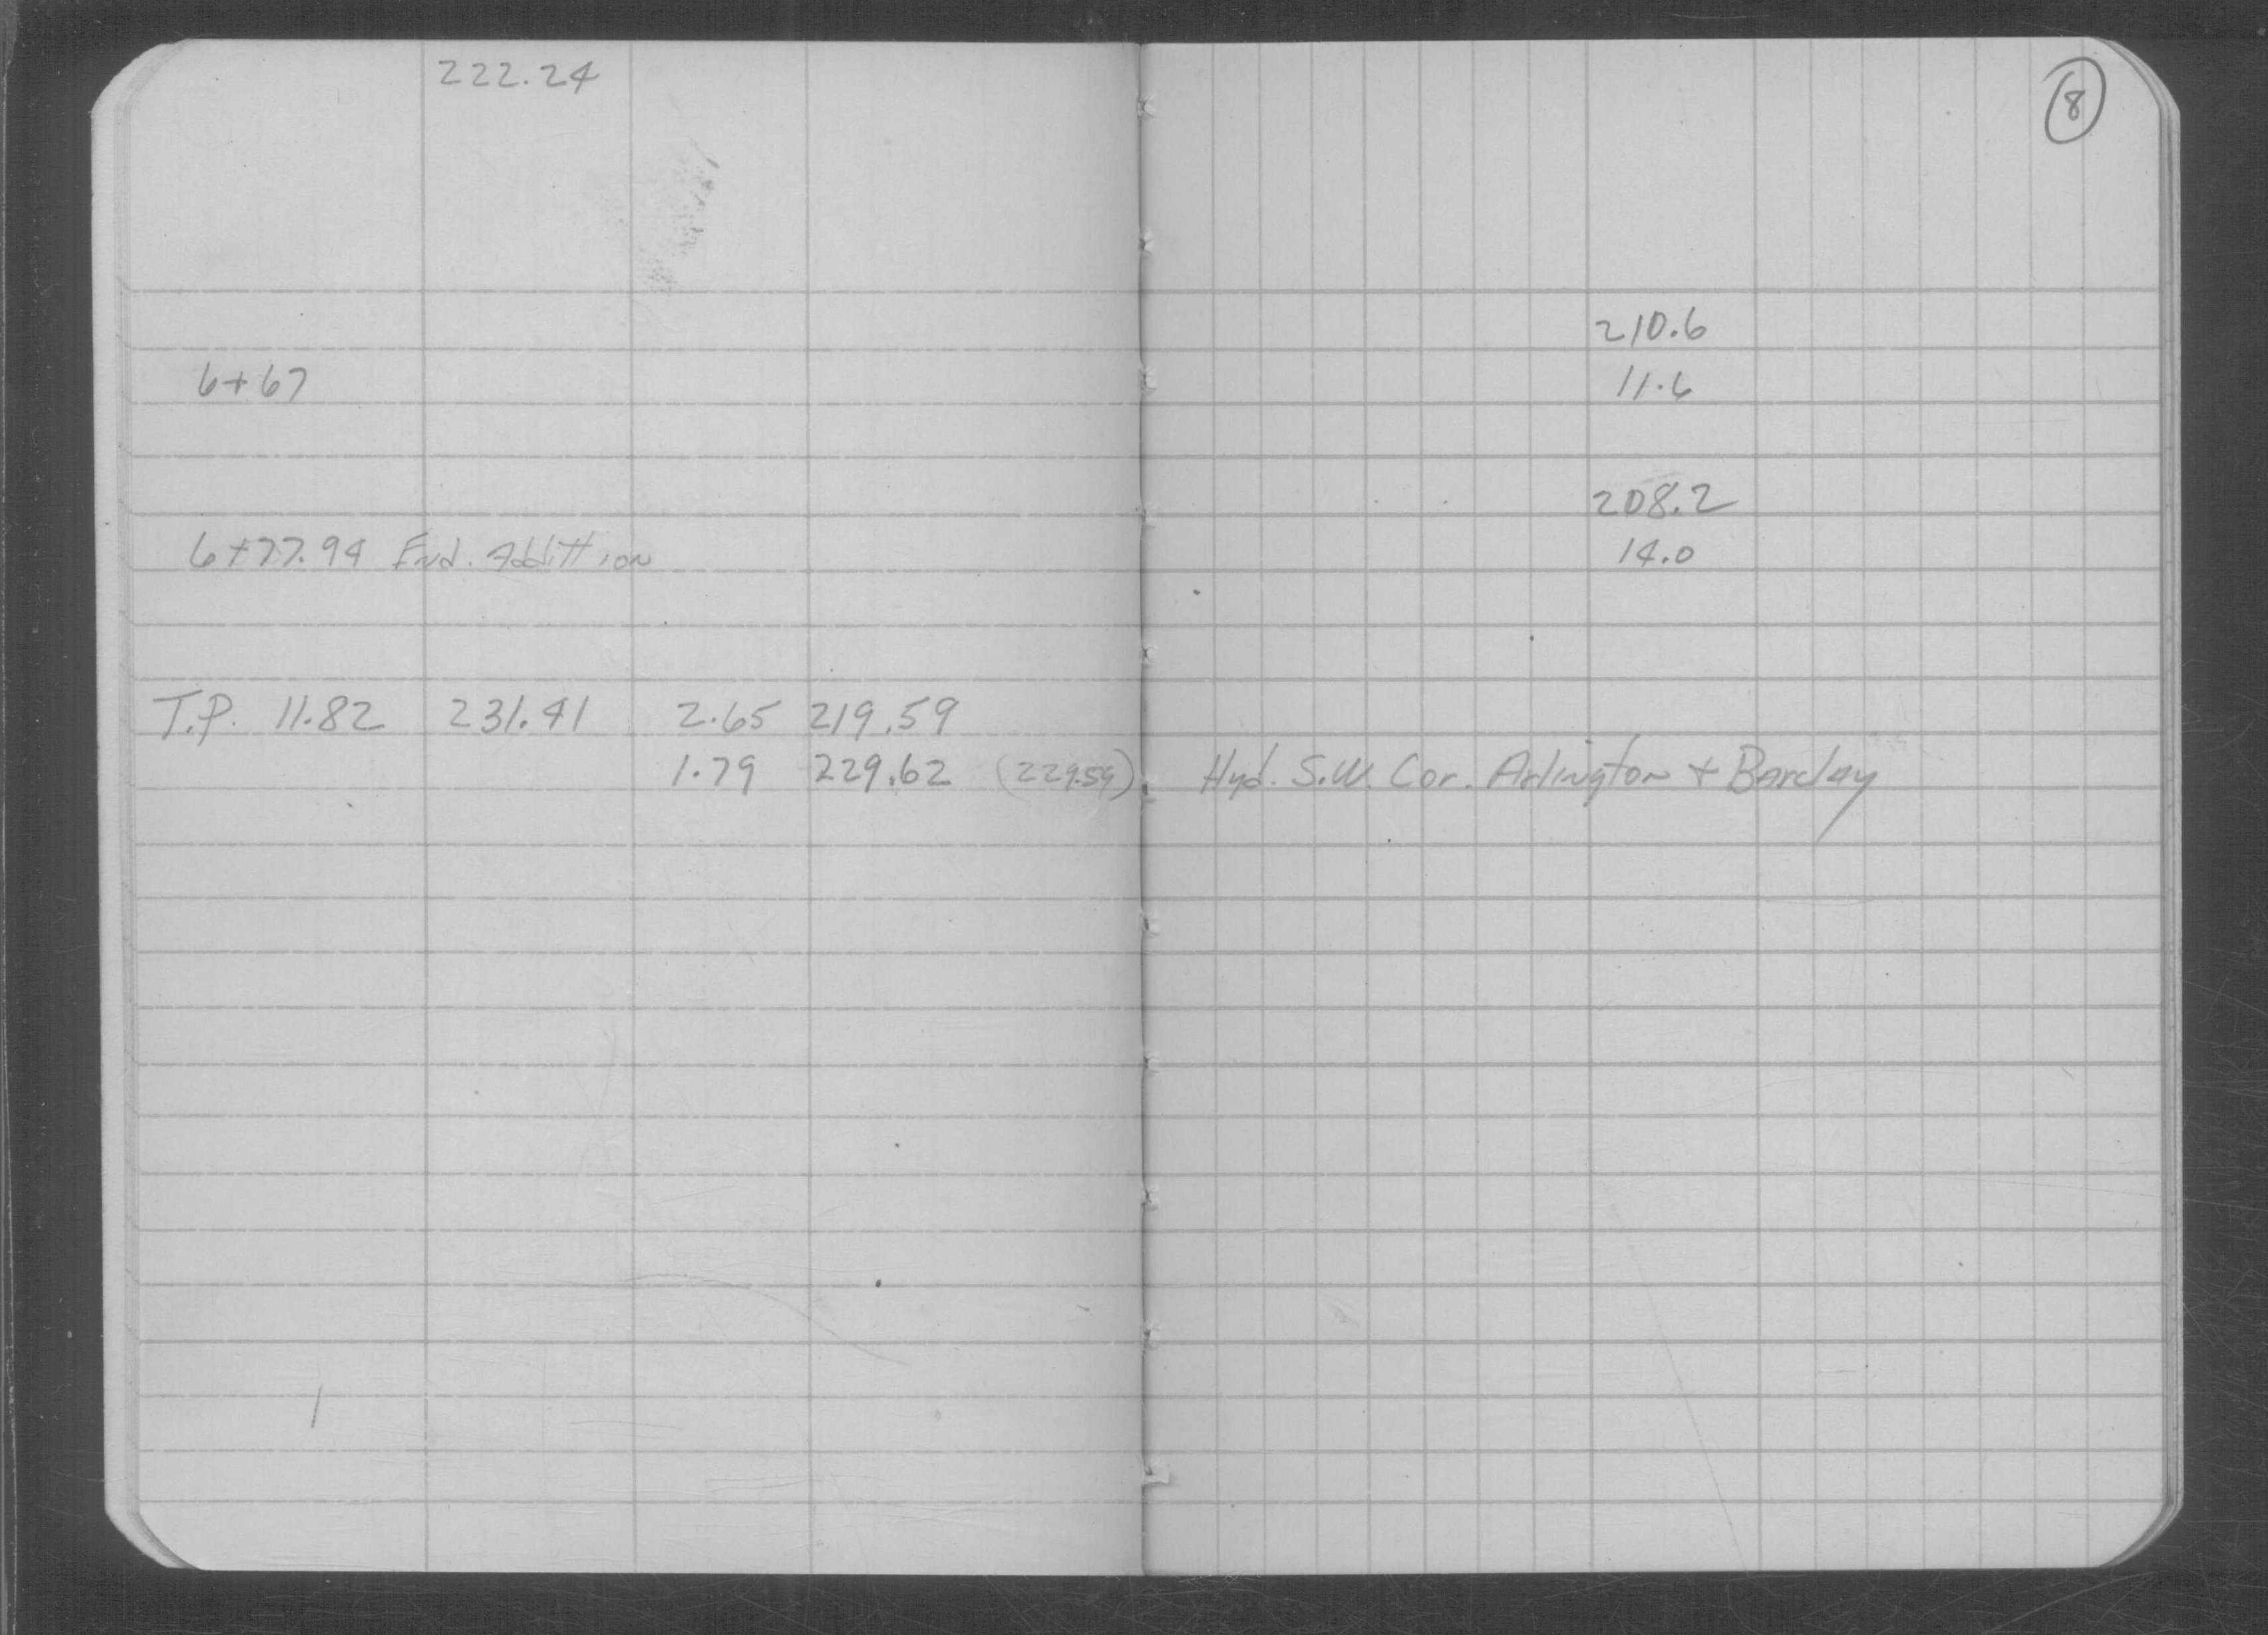 222.24
8
210.6
6+67 11.6
208.2
6+77.94 End. Addittion 14.0
T.P. 11.82 231.41 2.65 219.59
1.79 229.62 (229.59) Hyd. S.W. Cor. Arlington + Barclay